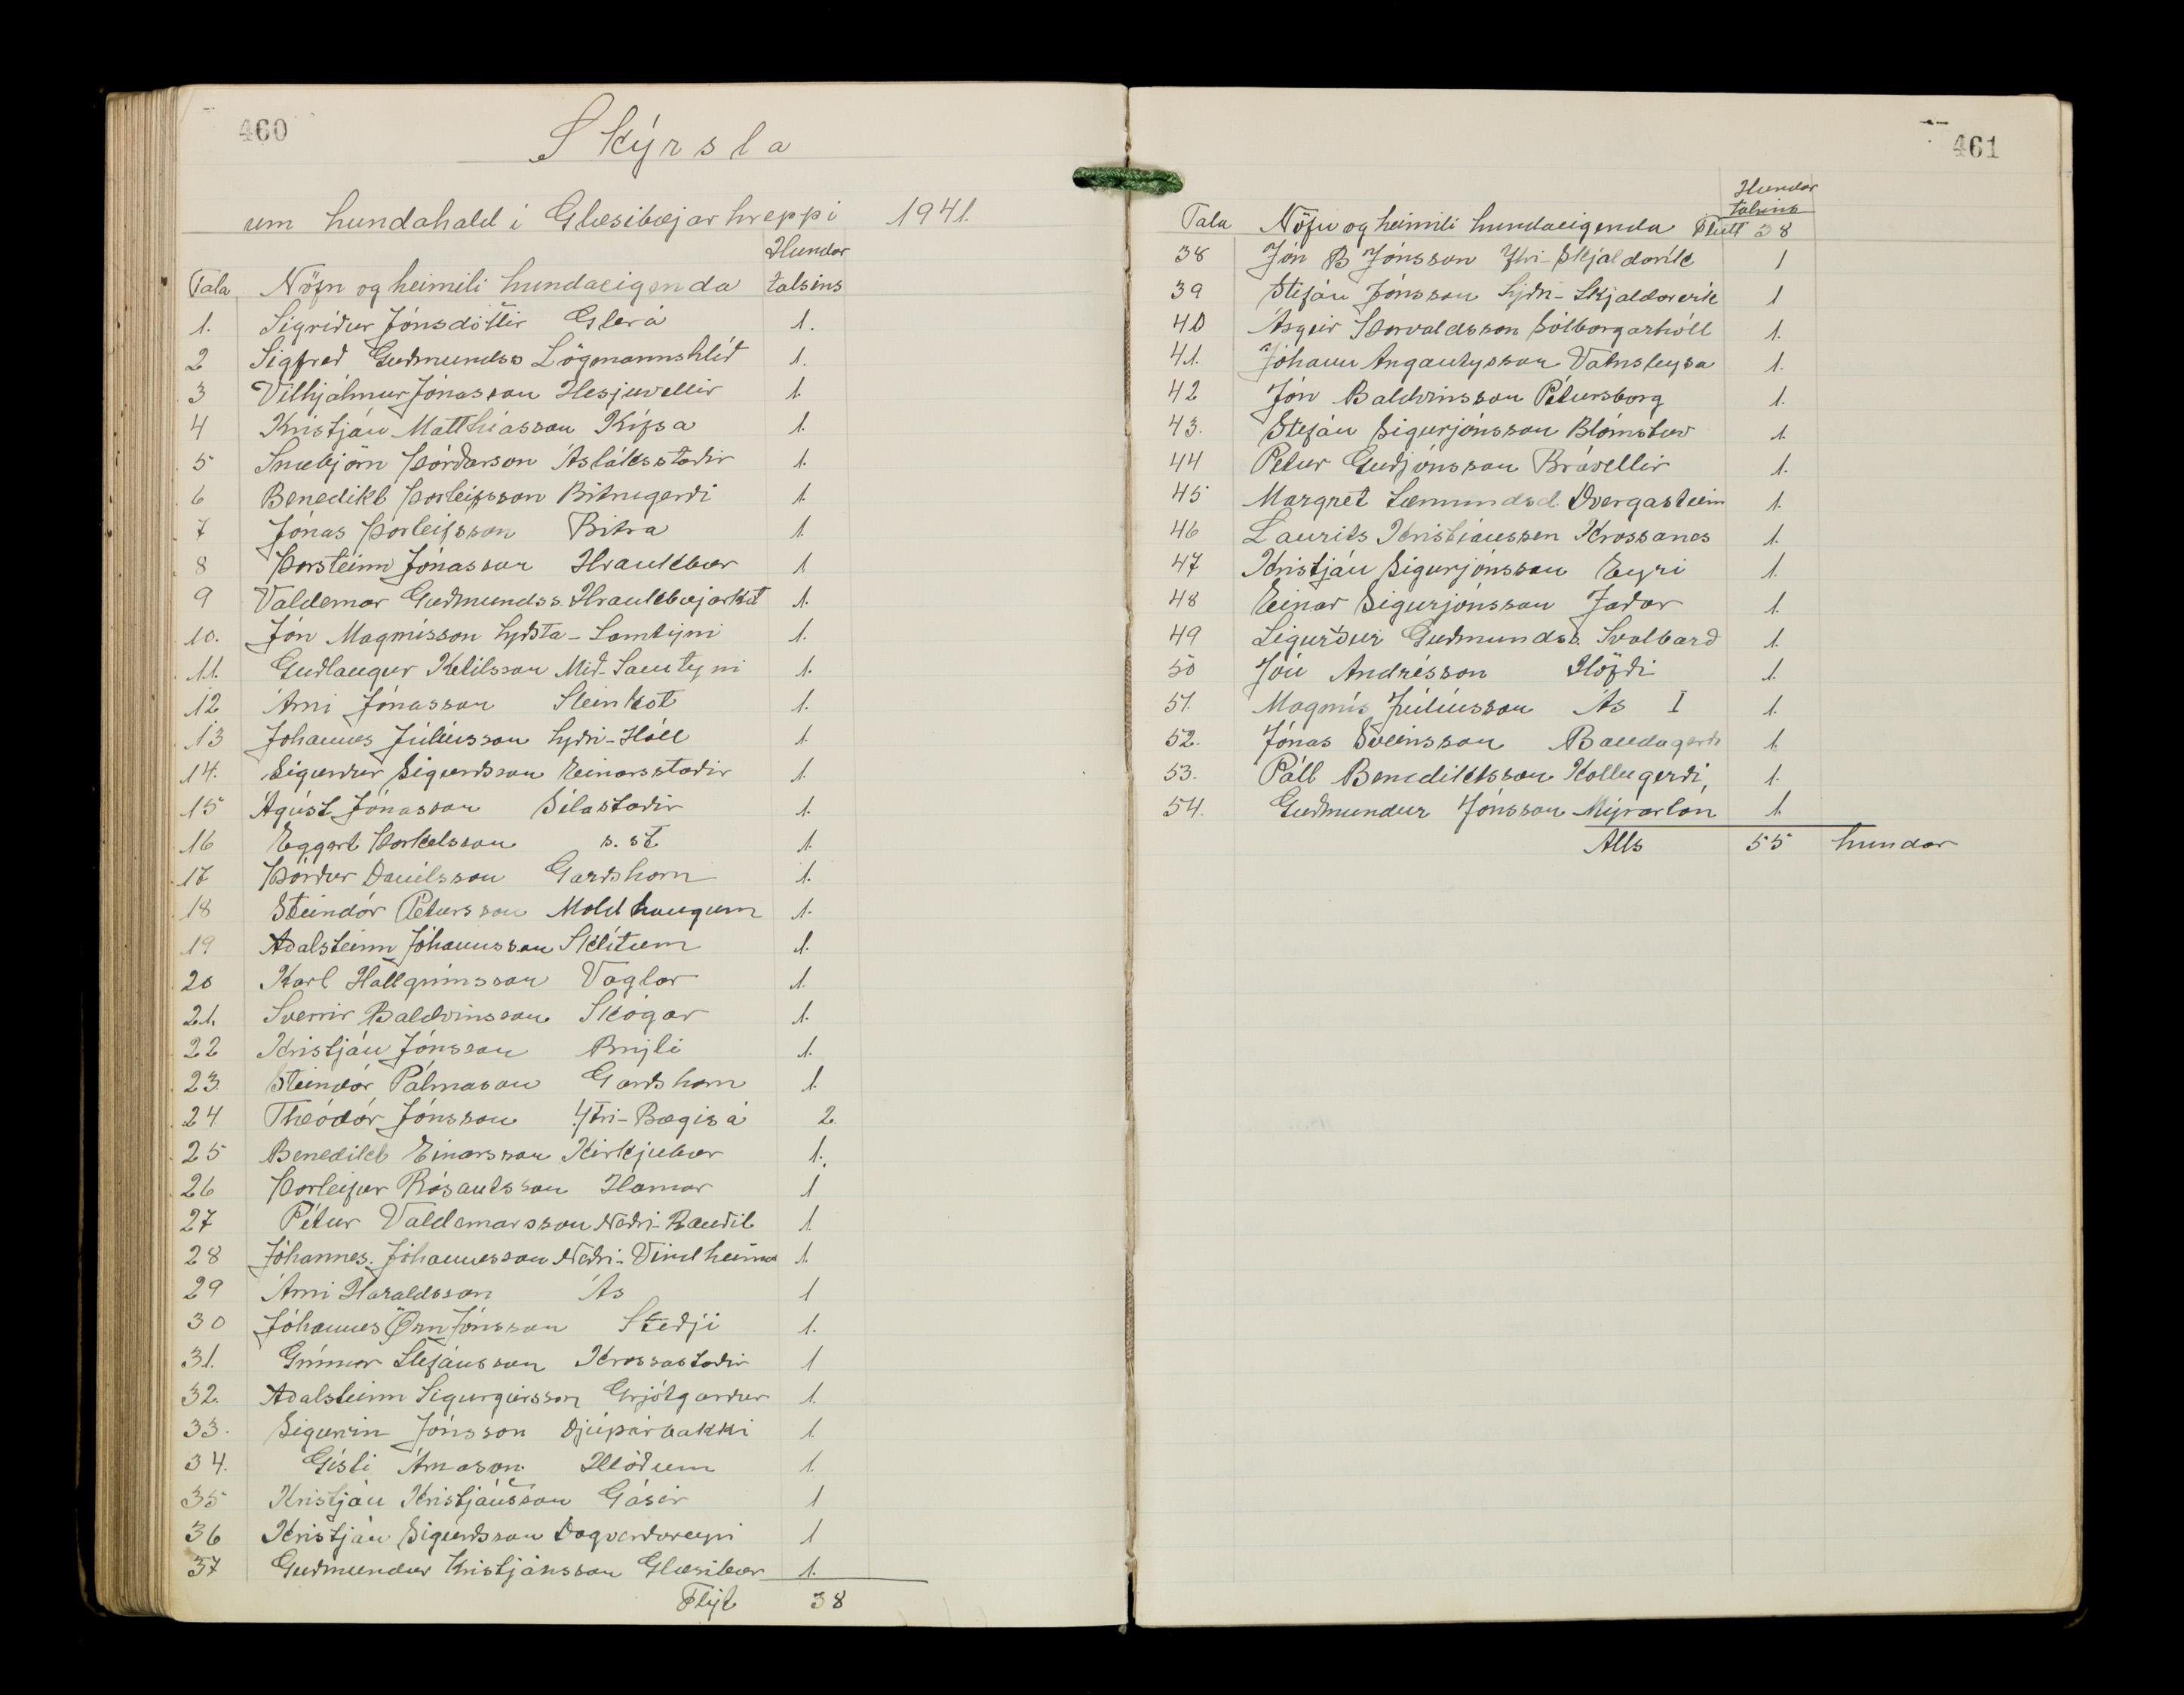 460
Skýrsla
um hundahald í Glæsibæjarhreppi 1941.
Tala Nöfn og heimili hundaeigenda Hundar talsins
1. Sigríður Jónsdóttir Glerá 1.
2 Sigfred Guðmundss Lögmannshlíð 1.
3 Vilhjálmur Jónasson Hesjuvellir 1.
4 Kristján Matthíasson Kífsá 1.
5 Snæbjörn Þórðarson Ásláksstaðir 1.
6 Benedikt Þorleifsson Bitrugerði 1.
7 Jónas Þorleifsson Bitra 1.
8 Þorsteinn Jónasson Hraukbær 1
9 Valdemar Guðmundss. Hraukbæjarkot 1.
10. Jón Magnússon Syðsta-Samtýni 1.
11. Guðlaugur Ketilsson Mið-Samtýni 1.
12 Árni Jónasson Steinkot 1.
13 Jóhannes Júlíusson Syðri-Hóll 1.
14. Sigurður Sigurðsson Einarsstaðir 1.
15 Ágúst Jónasson Sílastaðir 1.
16 Eggert Þorkelsson s. st. 1.
17 Þórður Daníelsson Garðshorn 1.
18 Steindór Pétursson Moldhaugum 1.
19 Aðalsteinn Jóhannsson Skútum 1.
20 Karl Hallgrímsson Vaglar 1.
21. Sverrir Baldvinsson Skógar 1.
22 Kristján Jónsson Brúli 1.
23. Steindór Pálmason Garðshorn 1.
24 Theódór Jónsson Ytri-Bægisá 2.
25 Benedikt Einarsson Kirkjubær 1.
26 Þorleifur Rósantsson Hamar 1
27 Pétur Valdemarsson Neðri-Rauðil 1.
28 Jóhannes Jóhannesson Neðri-Vindheima 1.
29 Árni Haraldsson Ás 1
30 Jóhannes Örn Jónsson Steðji 1.
31. Grímur Stefánsson Krossastaðir 1
32. Aðalsteinn Sigurgeirsson Grjótgarður 1.
33. Sigurvin Jónsson Djúpárbakki 1.
34. Gísli Árnason Hlöðum 1.
35 Kristján Kristjánsson Gásir 1
36 Kristján Sigurðsson Dagverðareyri 1
37 Guðmundur Kristjánsson Glæsibær 1.
Flyt 38
461
Tala Nöfn og heimili hundaeigenda Hundar talsins
Flutt 38
38 Jón B Jónsson Ytri-Skjaldarvík 1
39 Stefán Jónsson Syðri-Skjaldarvík 1
40 Ásgeir Þorvaldsson Sólborgarhóll 1.
41. Jóhann Angantýsson Vatnsleysa 1.
42 Jón Baldvinsson Pétursborg 1.
43. Stefán Sigurjónsson Blómstur 1.
44 Pétur Guðjónsson Brávellir 1.
45 Margrét Sæmundsd. Dvergasteinn 1.
46 Laurits Kristiansen Krossanes 1.
47 Kristján Sigurjónsson Eyri 1.
48 Einar Sigurjónsson Jaðar 1.
49 Sigurður Guðmundss. Svalbarð 1.
50 Jón Andrésson Höfði 1.
51. Magnús Júlíusson Ás I 1.
52. Jónas Sveinsson Bandagerði 1.
53. Páll Benediktsson Kollugerði 1.
54. Guðmundur Jónsson Mýrarlón 1.
Alls 55 hundar